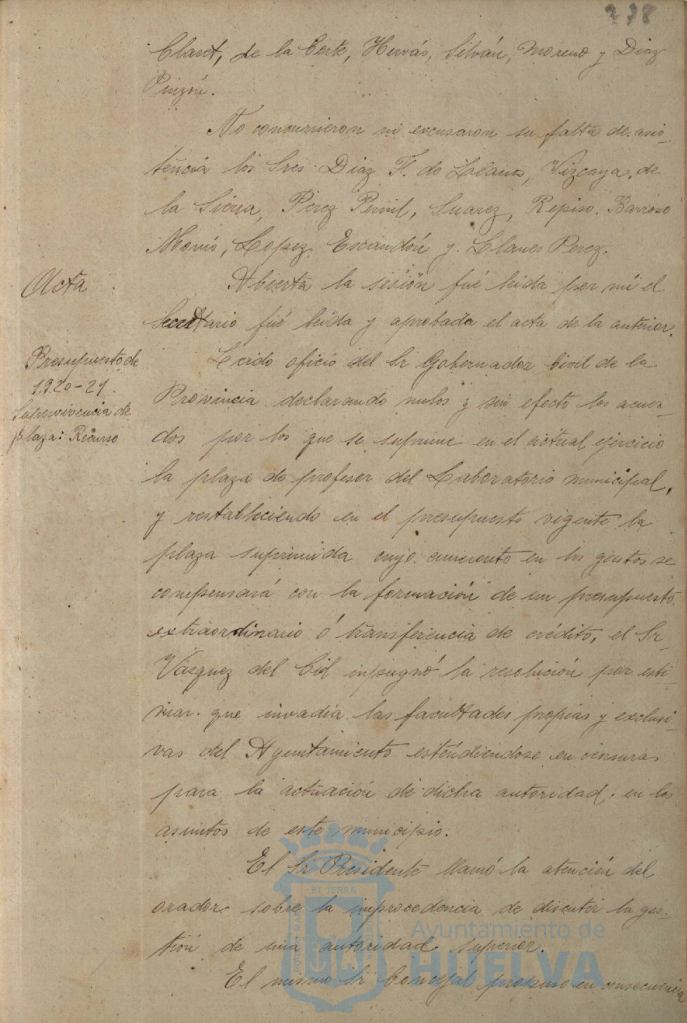 278
Claret, de la Corte, Hervás, Silván, Moreno y Diaz
Pinzón.
No concurrieron ni escusaron su falta de asis-
tencia los Sres. Diaz F. de Lalanos, Vizcaya, de
la Sierra, Perez Pernil, Suarez, Repiso, Barroso
López, Escandón y Llanes Perez.
Acta
Abierta la sesión fué leida por mi el
Secretario fué leida y aprobada el acta de la anterior.
Presupuesto de
1920-21
Supervivencia de
plaza: Recurso
Leido oficio del Sr Gobernador Civil de la
Provincia declarando nulos y sin efecto los acuer-
dos por los que se suprime en el actual ejercicio
la plaza de profesor del Laboratorio municipal,
y restableciendo en el presupuesto vigente la
plaza suprimida cuyo aumento en los gastos se
compensará con la formación de un presupuesto
extraordinario ó transferencia de crédito, el Sr
Vazquez del Cid impugnó la resolución por esti-
mar que invadia las facultades propias y exclusi-
vas del Ayuntamiento estendiendose en censuras
para la actuación de dicha autoridad en los
asuntos de este municipio.
El Sr Presidente llamó la atención del
orador sobre la improcedencia de discutir la ges-
tión de una autoridad superior.
El mismo Sr Concejal propuso en consecuencia
Ayuntamiento de
HUELVA